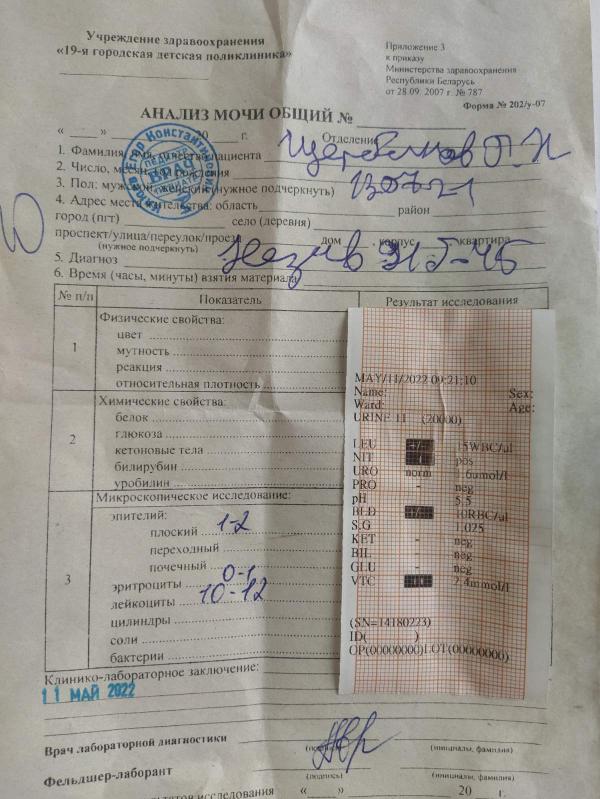 Учреждение здравоохранения
«19-я городская детская поликлиника»
Приложение 3
к приказу
Министерства здравоохранения
Республики Беларусь
от 28.09. 2007 г. № 787
Форма № 202/у-07
АНАЛИЗ МОЧИ ОБЩИЙ №
« » 20 г.
Отделение
1. Фамилия, пациента
2. Число, месяц, рождения
3. Пол: мужской, женский (нужное подчеркнуть)
4. Адрес места жительства: область район
город (пгт) село (деревня)
проспект/улица/переулок/проезд дом корпус квартира
(нужное подчеркнуть)
5. Диагноз
6. Время (часы, минуты) взятия материала
ВРАЧ
№ п/п Показатель Результат исследования
1 Физические свойства:
цвет
мутность
реакция
относительная плотность
2 Химические свойства:
белок
глюкоза
кетоновые тела
билирубин
уробилин
3 Микроскопическое исследование:
эпителий:
плоский 1-2
переходный
почечный
эритроциты 0-1
лейкоциты 10-12
цилиндры
соли
бактерии
MAY/11/2022 09:21:10
Name: Sex:
Ward: Age:
URINE 11 (20000)
LEU 15WBC/ul
NIT pos
URO norm 1.6umol/l
PRO - neg
pH 5.5
BLD 10RBC/ul
S.G 1.025
KET - neg
BIL - neg
GLU - neg
VTC 2.4mmol/l
(SN=14180223)
ID( )
OP(00000000)LOT(00000000)
Клинико-лабораторное заключение:
11 МАЙ 2022
Врач лабораторной диагностики
(подпись) (инициалы, фамилия)
Фельдшер-лаборант
(подпись) (инициалы, фамилия)
исследования « » 20 г.